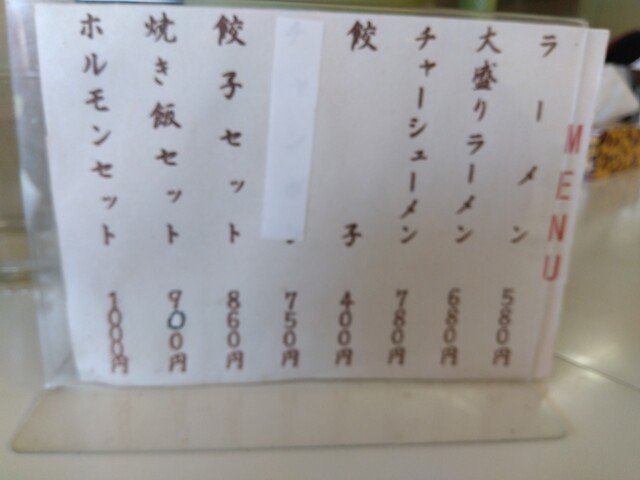 MENU
ラーメン 580円
大盛りラーメン 680円
チャーシューメン 780円
餃子 400円
750円
餃子セット 860円
焼き飯セット 900円
ホルモンセット 1000円